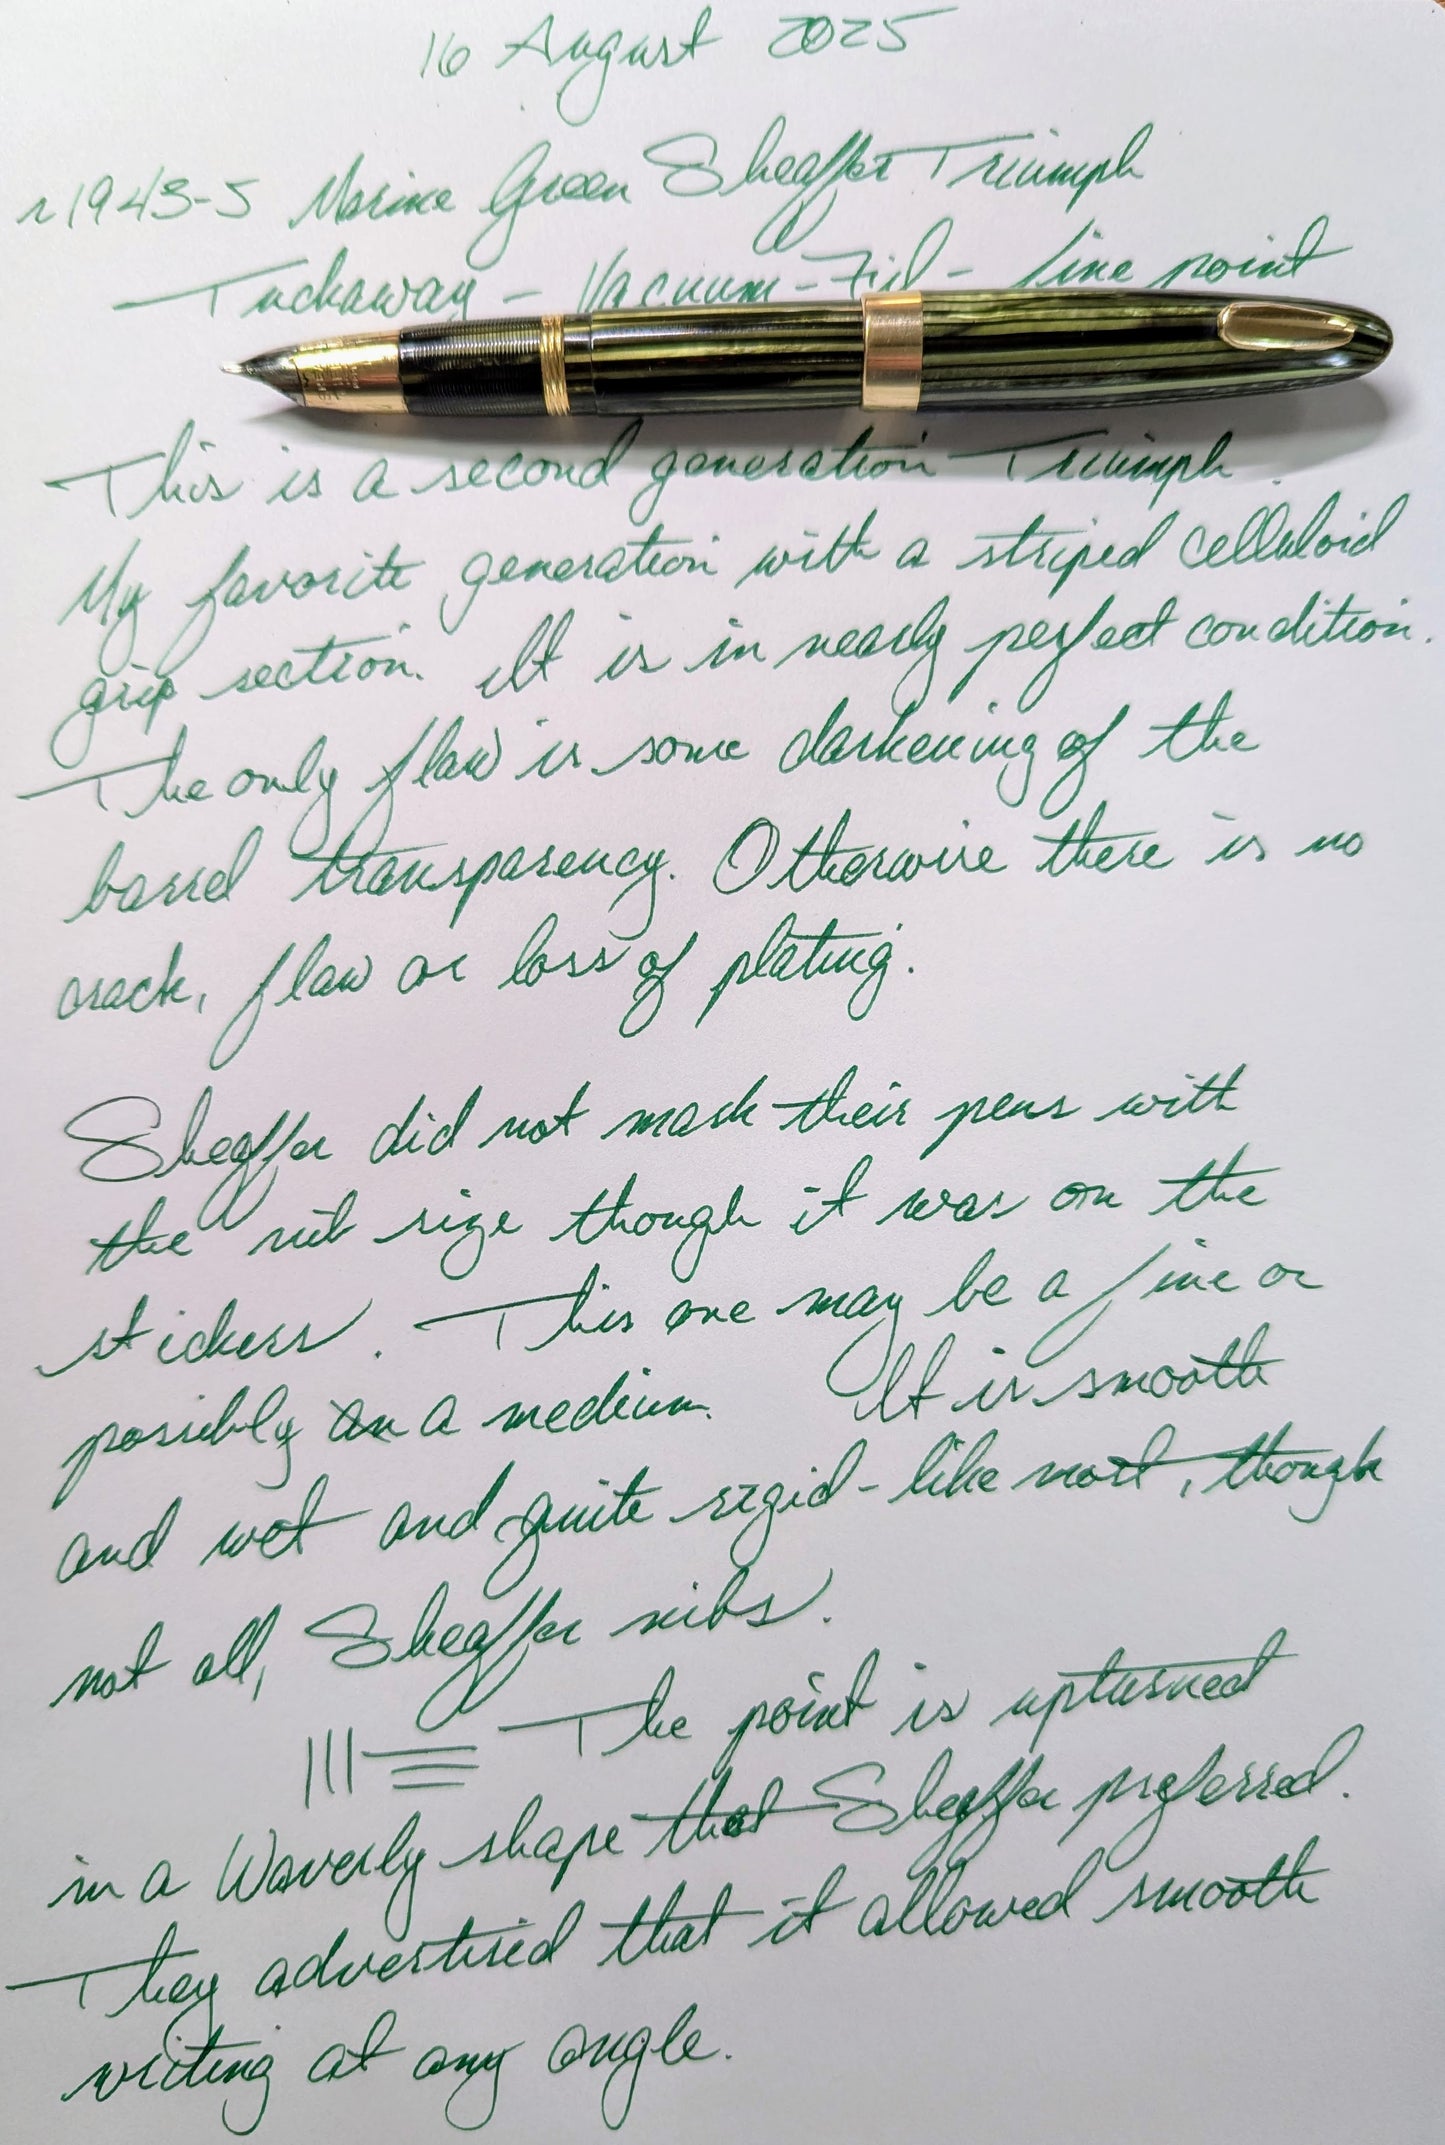 16 August 2025
~1943-5 Marine Green Sheaffer Triumph
Tuckaway - Vacuum-Fil - fine point
This is a second generation Triumph.
My favorite generation with a striped celluloid
grip section. It is in nearly perfect condition.
The only flaw is some darkening of the
barrel transparency. Otherwise there is no
crack, flaw or loss of plating.
Sheaffer did not mark their pens with
the nib size though it was on the
stickers. This one may be a fine or
possibly a medium. It is smooth
and wet and quite rigid-like most, though
not all, Sheaffer nibs.
The point is upturned
in a Waverly shape that Sheaffer preferred.
They advertised that it allowed smooth
writing at any angle.